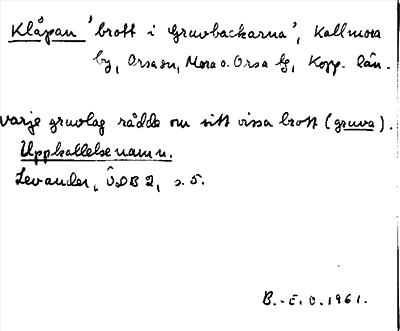 Klåpan 'brott i Gruvbackarna', Kallmora
by, Orsa sn, Mora o. Orsa tg, Kopp. län.
varje gruvlag rådde om sitt vissa brott (gruva).
Uppkallelsenamn.
Levander, ÖDB 2, s. 5.
B.-E. O. 1961.